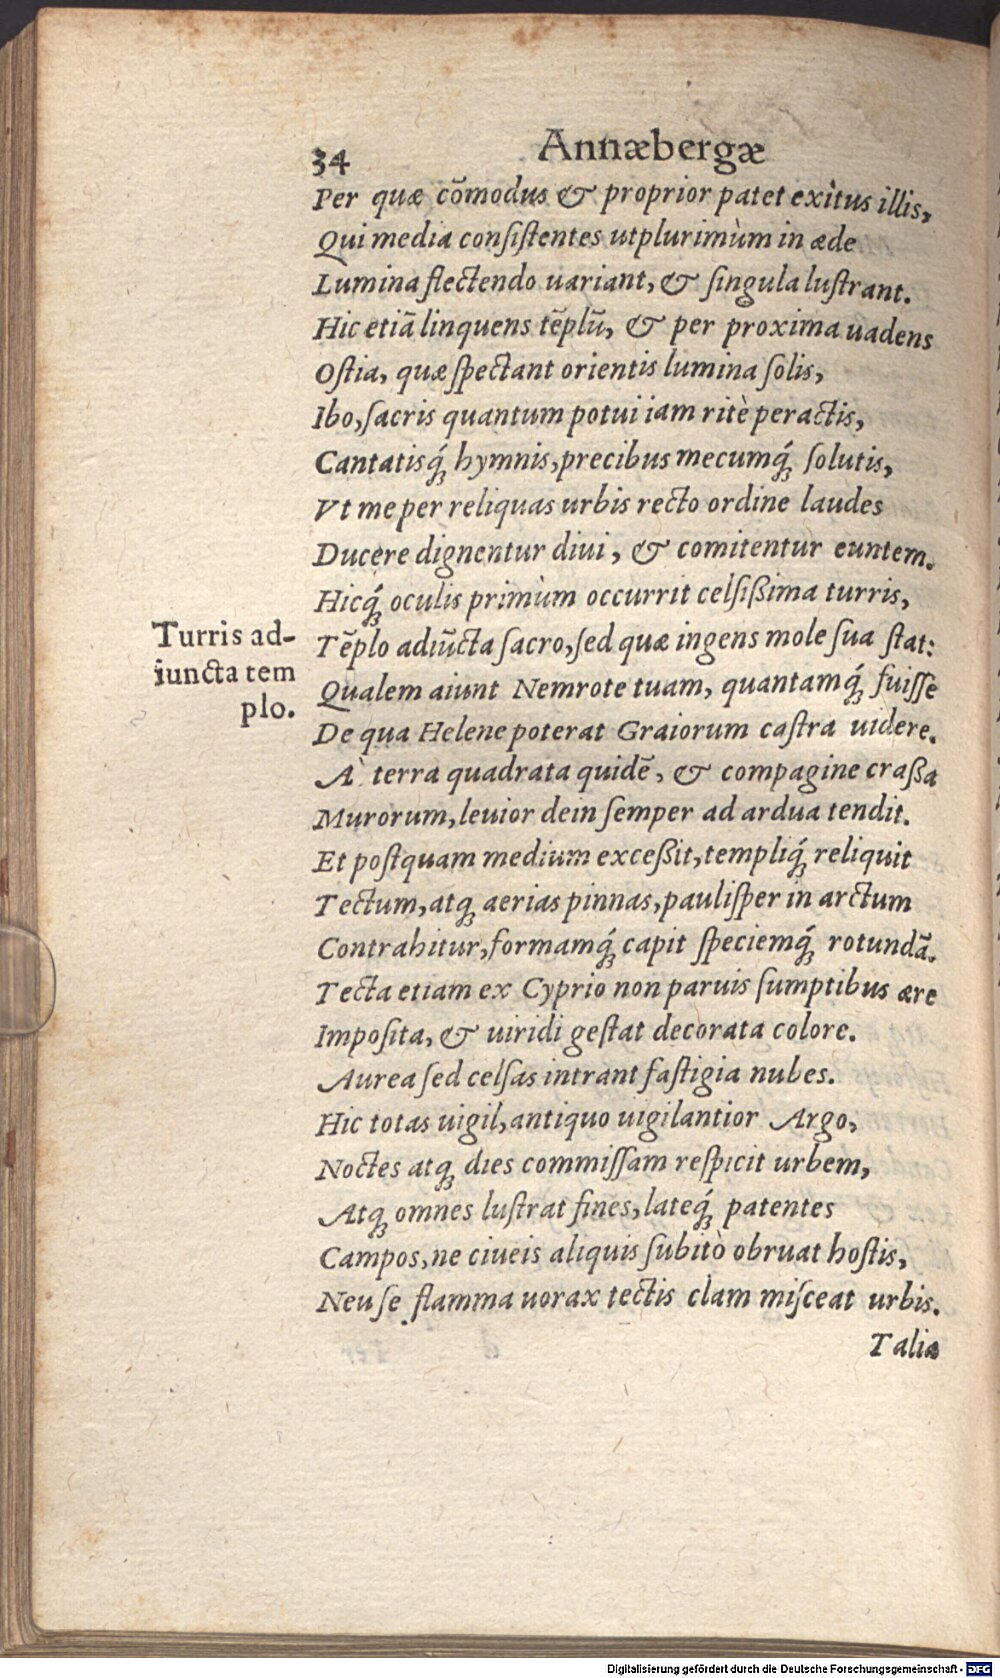 34 Annæbergæ
Per quæ cōmodus & proprior patet exitus illis,
Qui media conſiſtentes utplurimùm in æde
Lumina flectendo uariant, & ſingula luſtrant.
Hic etiā linquens tēplū, & per proxima uadens
Oſtia, quæ ſpectant orientis lumina ſolis,
Ibo, ſacris quantum potui iam ritè peractis,
Cantatisq́; hymnis, precibus mecumq́; ſolutis,
Vt me per reliquas urbis recto ordine laudes
Ducere dignentur diui, & comitentur euntem.
Hicq́; oculis primùm occurrit celſißima turris,
Turris ad-
iuncta tem
plo.
Tēplo adiūcta ſacro, ſed quæ ingens mole ſua ſtat:
Qualem aiunt Nemrote tuam, quantamq́; fuiſſe
De qua Helene poterat Graiorum caſtra uidere.
A` terra quadrata quidē, & compagine craßa
Murorum, leuior dein ſemper ad ardua tendit.
Et poſtquam medium exceßit, templiq́; reliquit
Tectum, atq; aerias pinnas, pauliſper in arctum
Contrahitur, formamq́; capit ſpeciemq́; rotundā.
Tecta etiam ex Cyprio non paruis ſumptibus ære
Impoſita, & uiridi geſtat decorata colore.
Aurea ſed celſas intrant faſtigia nubes.
Hic totas uigil, antiquo uigilantior Argo,
Noctes atq; dies commiſſam reſpicit urbem,
Atq; omnes luſtrat fines, lateq́; patentes
Campos, ne ciueis aliquis ſubitò obruat hoſtis,
Neu ſe flamma uorax tectis clam miſceat urbis.
Talia
Digitalisierung gefördert durch die Deutsche Forschungsgemeinschaft - DFG